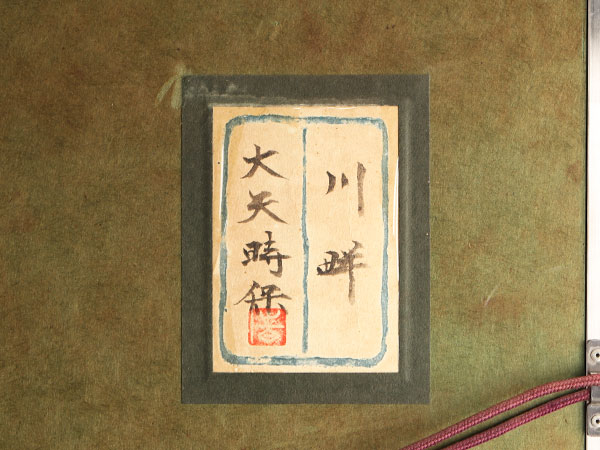 川畔
大矢時保